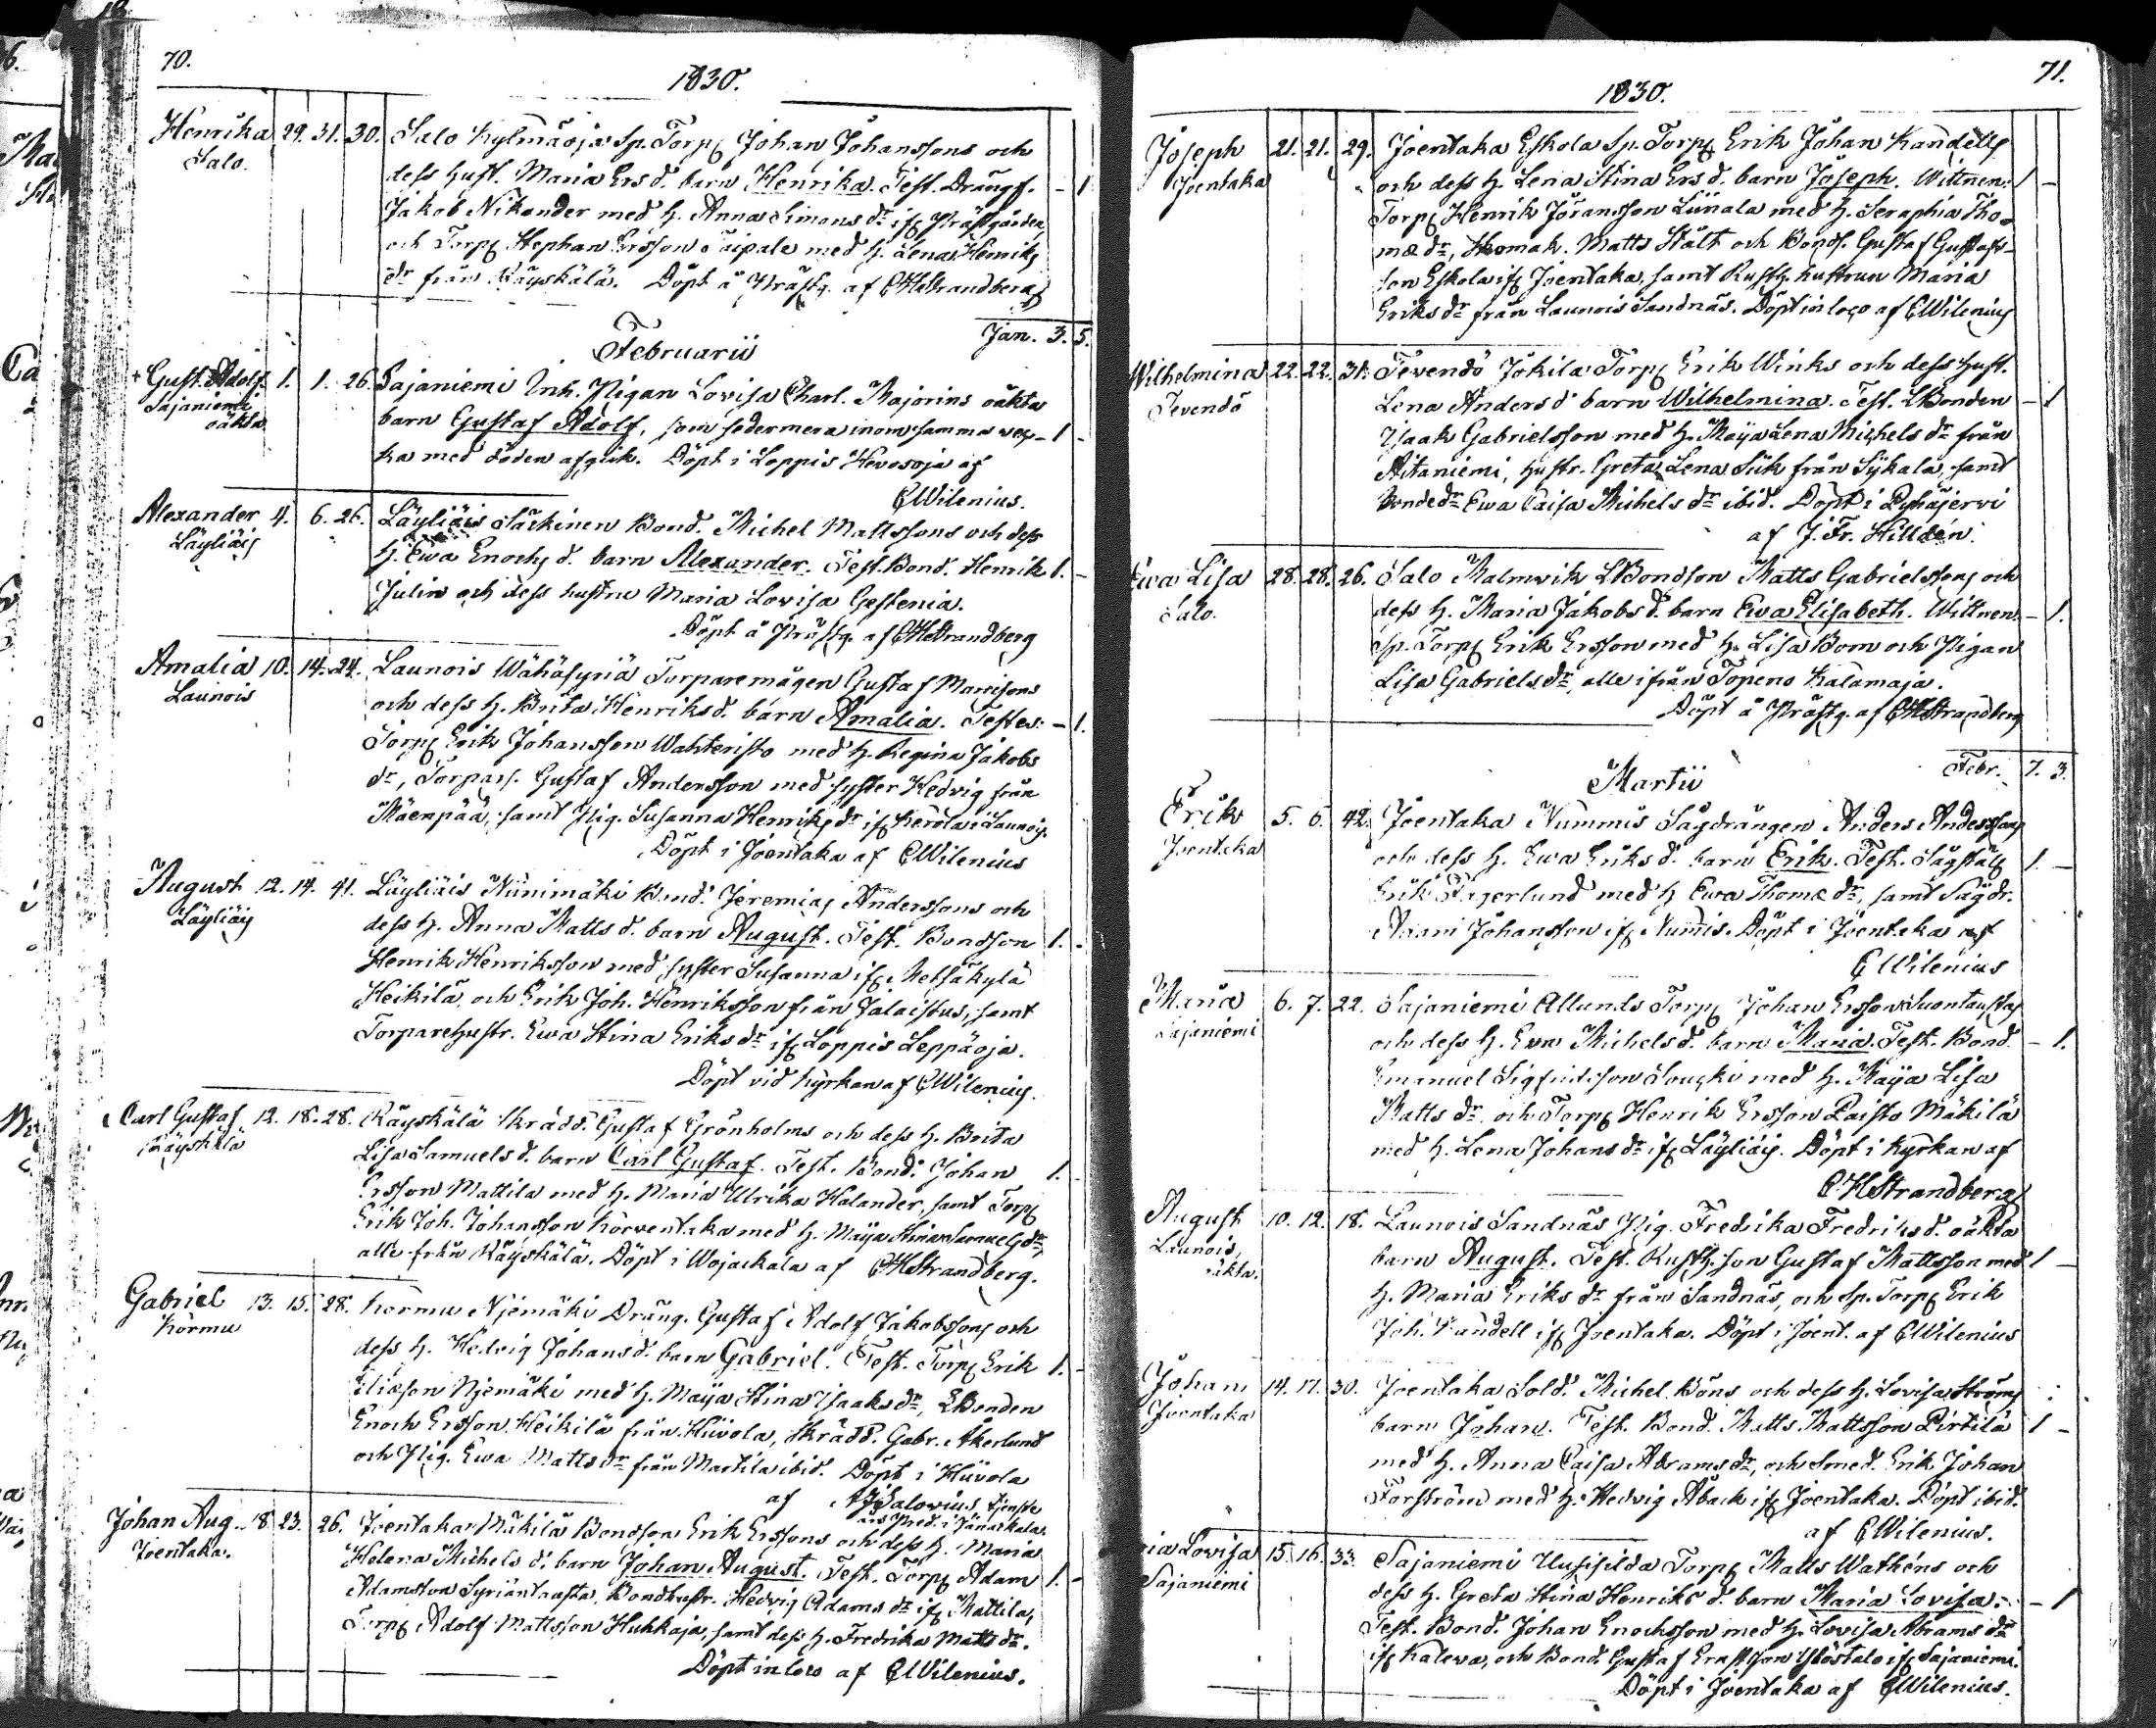 70.
1830.
Henrika 29. 31. 30. Salo Kylmäoja Sp. Torp. Johan Johanssons och
Salo. dess hust. Maria Ers d. barn Henrika. Test. Drängs. - 1
Jakob Nikander med h. Anna Simons dr if. Prästgården,
och Torp. Stephan Ersson Taipale med h. Lena Henriks
dr från Räyskälä. Döpt å Prästg. af CHStrandberg
Jan. 3. 5.
Februarii
+ Gust. Adolf 1. 1. 26. Sajaniemi Inh. Pigan Lovisa Charl. Majorins oäkta
Sajaniemi barn Gustaf Adolf, som sedermera inom samma vec- - 1 -
oäkta ka med döden afgick. Döpt i Loppis Hevosoja af
CWilenius.
Alexander 4. 6. 26. Läyliäis Särkinen Bond. Michel Mattssons och dess
Läyliäis h. Ewa Enochs d. barn Alexander. Test. Bond. Henrik 1. -
Julin och dess hustru Maria Lovisa Gestenia.
Döpt å Prästg. af CHStrandberg
Amalia 10. 14. 24. Launois Wähäsyriä Torparemågen Gustaf Manssons
Launois och dess h. Brita Henriks d. barn Amalia. Testes: - 1.
Torp. Erik Johansson Wahteristo med h. Regina Jakobs
dr, Torpars. Gustaf Andersson med syster Hedvig från
Mäenpää, samt Pig. Susanna Henriks dr if. Kerola i Launois.
Döpt i Joentaka af CWilenius
August 12. 14. 41. Läyliäis Niinimäki Bond. Jeremias Anderssons och
Läyliäis dess h. Anna Matts d. barn August. Test. Bondson 1. -
Henrik Henriksson med syster Susanna if. Metsäkylä
Heikilä, och Erik Joh. Henriksson från Jalaistus, samt
Torparehustr. Ewa Stina Eriks dr if. Loppis Leppäoja.
Döpt vid Kyrkan af CWilenius.
Carl Gustaf 12. 18. 28. Räyskälä Skrädd. Gustaf Grönholms och dess h. Brita
Räyskälä Lisa Samuels d. barn Carl Gustaf. Test. Bond. Johan 1.
Ersson Mattila med h. Maria Ulrika Helander, samt Torp.
Erik Joh. Johansson Korventaka med h. Maija Stina Samuels dr,
alle från Räyskälä. Döpt i Wojakkala af CHStrandberg.
Gabriel 13. 15. 28. Kormu Njemäki Dräng. Gustaf Adolf Jakobssons och
Kormu dess h. Hedvig Johans d. barn Gabriel. Test. Torp. Erik 1. -
Eliæson Njemäki med h. Maija Stina Isaaks dr, LBonden
Enoch Ersson Heikilä från Hiivola, Skrädd. Gabr. Åkerlund
och Pig. Ewa Matts dr från Martila ibid. Döpt i Hiivola
af AJSalovius, tjenste
års Pred. i Janakkala.
Johan Aug. 18. 23. 26. Joentaka Mäkilä Bondson Erik Erssons och dess h. Maria
Joentaka. Helena Michels d. barn Johan August. Test. Torp. Adam 1. -
Adamsson Syriäntausta, Bondhustr. Hedvig Adams dr if. Mattila,
Torp. Adolf Mattsson Huhkaja, samt dess h. Fredrika Matts dr.
Döpt in loco af CWilenius.
71.
1830.
Joseph 21. 21. 29. Joentaka Eskola Sp. Torp. Erik Johan Kandells
Joentaka och dess h. Lena Stina Ers d. barn Joseph. Wittnen: 1 -
Torp. Henrik Göransson Liinala med h. Seraphia Tho-
mæ dr, Skomak. Matts Stålt och Bonds. Gustaf Gustafs-
son Eskola if. Joentaka, samt Rusth. hustrun Maria
Eriks dr från Launois Sandnäs. Döpt in loco af CWilenius
Wilhelmina 22. 22. 31. Tevendö Jokila Torp. Erik Winks och dess hust.
Tevendö Lena Anders d. barn Wilhelmina. Test. LBonden - 1
Isaak Gabrielsson med h. Maija Lena Michels dr från
Aitaniemi, hustr. Greta Lena Siik från Sykala, samt
bondedr Ewa Caisa Michels dr ibid. Döpt i Pyhäjervi
af J. Fr. Hilldén.
Ewa Lisa 28. 28. 26. Salo Malmvik LBondson Matts Gabrielssons och
Salo. dess h. Maria Jakobs d. barn Ewa Elisabeth. Wittnen - 1.
Sp. Torp. Erik Ersson med h. Lisa Bom och Pigan
Lisa Gabriels dr, alle ifrån Topeno Kalamaja.
Döpt å Prästg. af CHStrandberg
Febr. 7. 3.
Martii
Erik 5. 6. 42. Joentaka Nummis Sågdrängen Anders Anderssons
Joentaka och dess h. Ewa Eriks d. barn Erik. Test. Sågställ. 1. -
Erik Fagerlund med h. Ewa Thomæ dr, samt Sågdr.
Adam Johansson if. Numis. Döpt i Joentaka af
CWilenius
Maria 6. 7. 22. Sajaniemi Allunds Torp. Johan Ersson Suontaustas
Sajaniemi och dess h. Ewa Michels d. barn Maria. Test. Bond. - 1.
Emanuel Sigfridsson Souski med h. Maija Lisa
Matts dr och Torp. Henrik Ersson Paisto Mäkilä
med h. Lena Johans dr if. Läyliäis. Döpt i Kyrkan af
CHStrandberg
August 10. 12. 18. Launois Sandnäs Pig. Fredrika Fredriks d. oäkta
Launois, barn August. Test. Rusth. son Gustaf Mattsson med 1 -
oäkta. h. Maria Eriks dr från Sandnäs, och Sp. Torp. Erik
Joh. Kandell if. Joentaka. Döpt i Joent. af CWilenius
Johan 14. 17. 30. Joentaka Sold. Michel Böns och dess h. Lovisa Ströms
Joentaka barn Johan. Test. Bond. Matts Mattsson Pirtilä 1 -
med h. Anna Caisa Abrams dr, och Smed. Erik Johan
Forström med h. Hedvig Åback if. Joentaka. Döpt ibid.
af CWilenius.
Maria Lovisa 15. 16. 33. Sajaniemi Uusisilda Torp. Matts Wathéns och
Sajaniemi dess h. Greta Stina Henriks d. barn Maria Lovisa. - 1
Test. Bond. Johan Enochsson med h. Lovisa Abrams dr
if. Kaleva, och Bond. Gustaf Ernstsson Yllöstalo if. Sajaniemi.
Döpt i Joentaka af CWilenius.